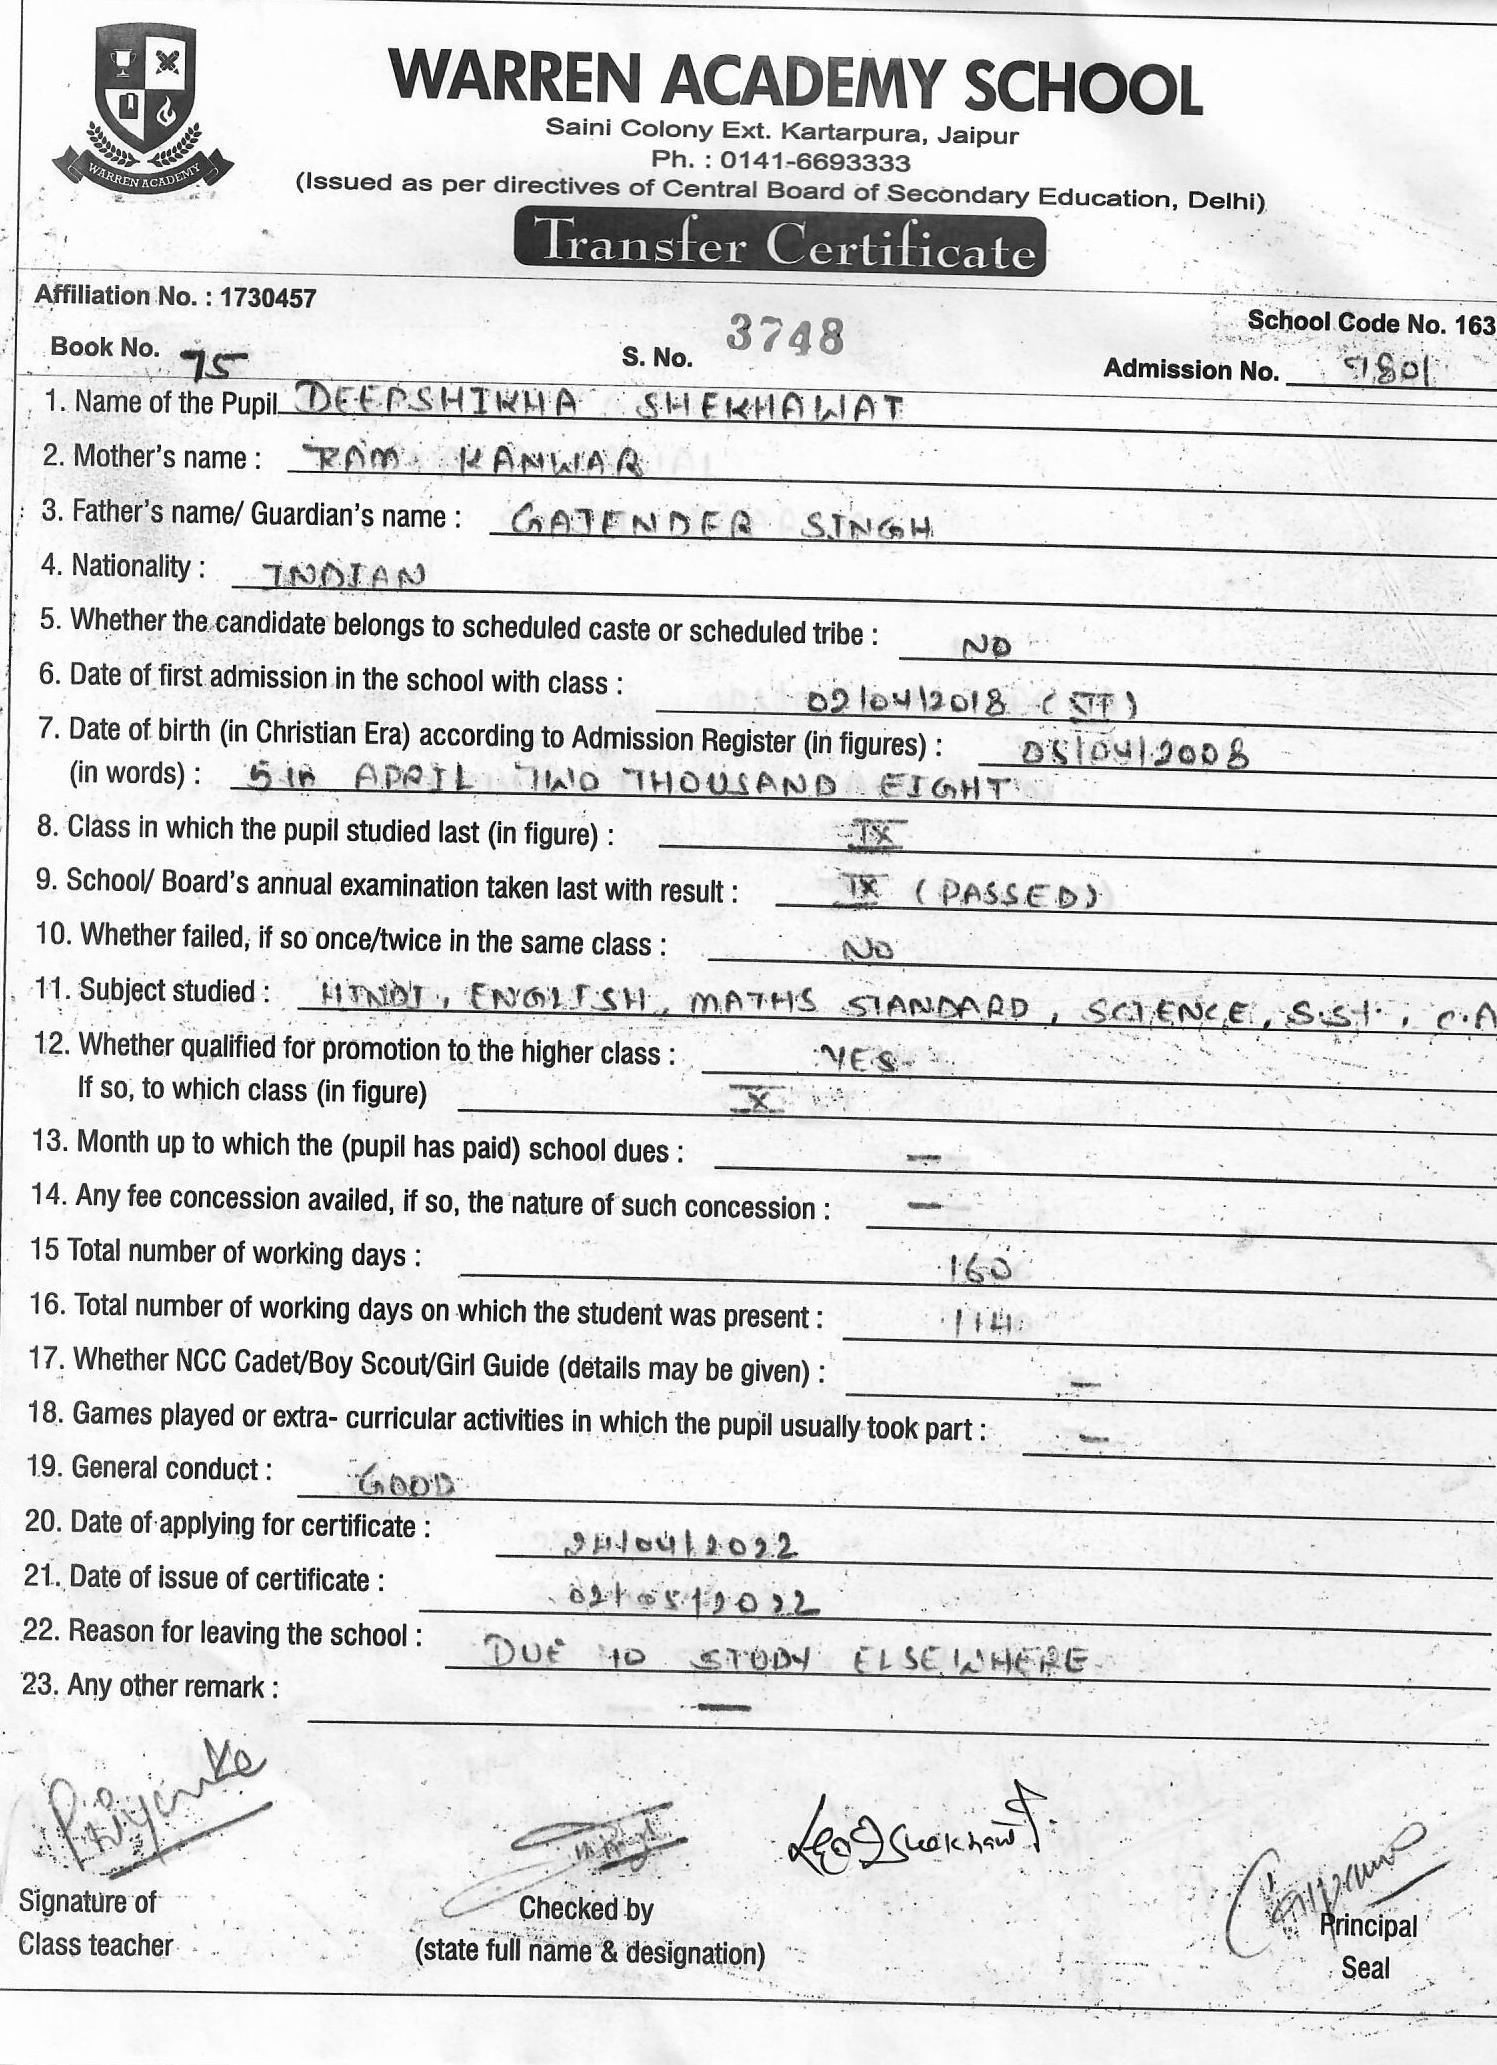 WARREN ACADEMY
WARREN ACADEMY SCHOOL
Saini Colony Ext. Kartarpura, Jaipur
Ph. : 0141-6693333
(Issued as per directives of Central Board of Secondary Education, Delhi)
Transfer Certificate
Affiliation No. : 1730457
School Code No. 163
Book No. 75 S. No. 3748 Admission No. 9801
1. Name of the Pupil DEEPSHIKHA SHEKHAWAT
2. Mother's name : RAM KANWAR
3. Father's name/ Guardian's name : GAJENDER SINGH
4. Nationality : INDIAN
5. Whether the candidate belongs to scheduled caste or scheduled tribe : NO
6. Date of first admission in the school with class : 02/04/2018
7. Date of birth (in Christian Era) according to Admission Register (in figures) : 05/04/2008
(in words) : 5TH APRIL TWO THOUSAND EIGHT
8. Class in which the pupil studied last (in figure) : IX
9. School/ Board's annual examination taken last with result : IX (PASSED)
10. Whether failed, if so once/twice in the same class : NO
11. Subject studied : HINDI, ENGLISH, MATHS STANDARD, SCIENCE, S.St., C.A
12. Whether qualified for promotion to the higher class : YES
If so, to which class (in figure) X
13. Month up to which the (pupil has paid) school dues : —
14. Any fee concession availed, if so, the nature of such concession : —
15 Total number of working days : 160
16. Total number of working days on which the student was present : 114
17. Whether NCC Cadet/Boy Scout/Girl Guide (details may be given) : —
18. Games played or extra- curricular activities in which the pupil usually took part : —
19. General conduct : GOOD
20. Date of applying for certificate : 24/04/2022
21. Date of issue of certificate : 02/05/2022
22. Reason for leaving the school : DUE TO STUDY ELSEWHERE
23. Any other remark : —
Priyanka
Signature of
Class teacher
Checked by
(state full name & designation)
Principal
Seal